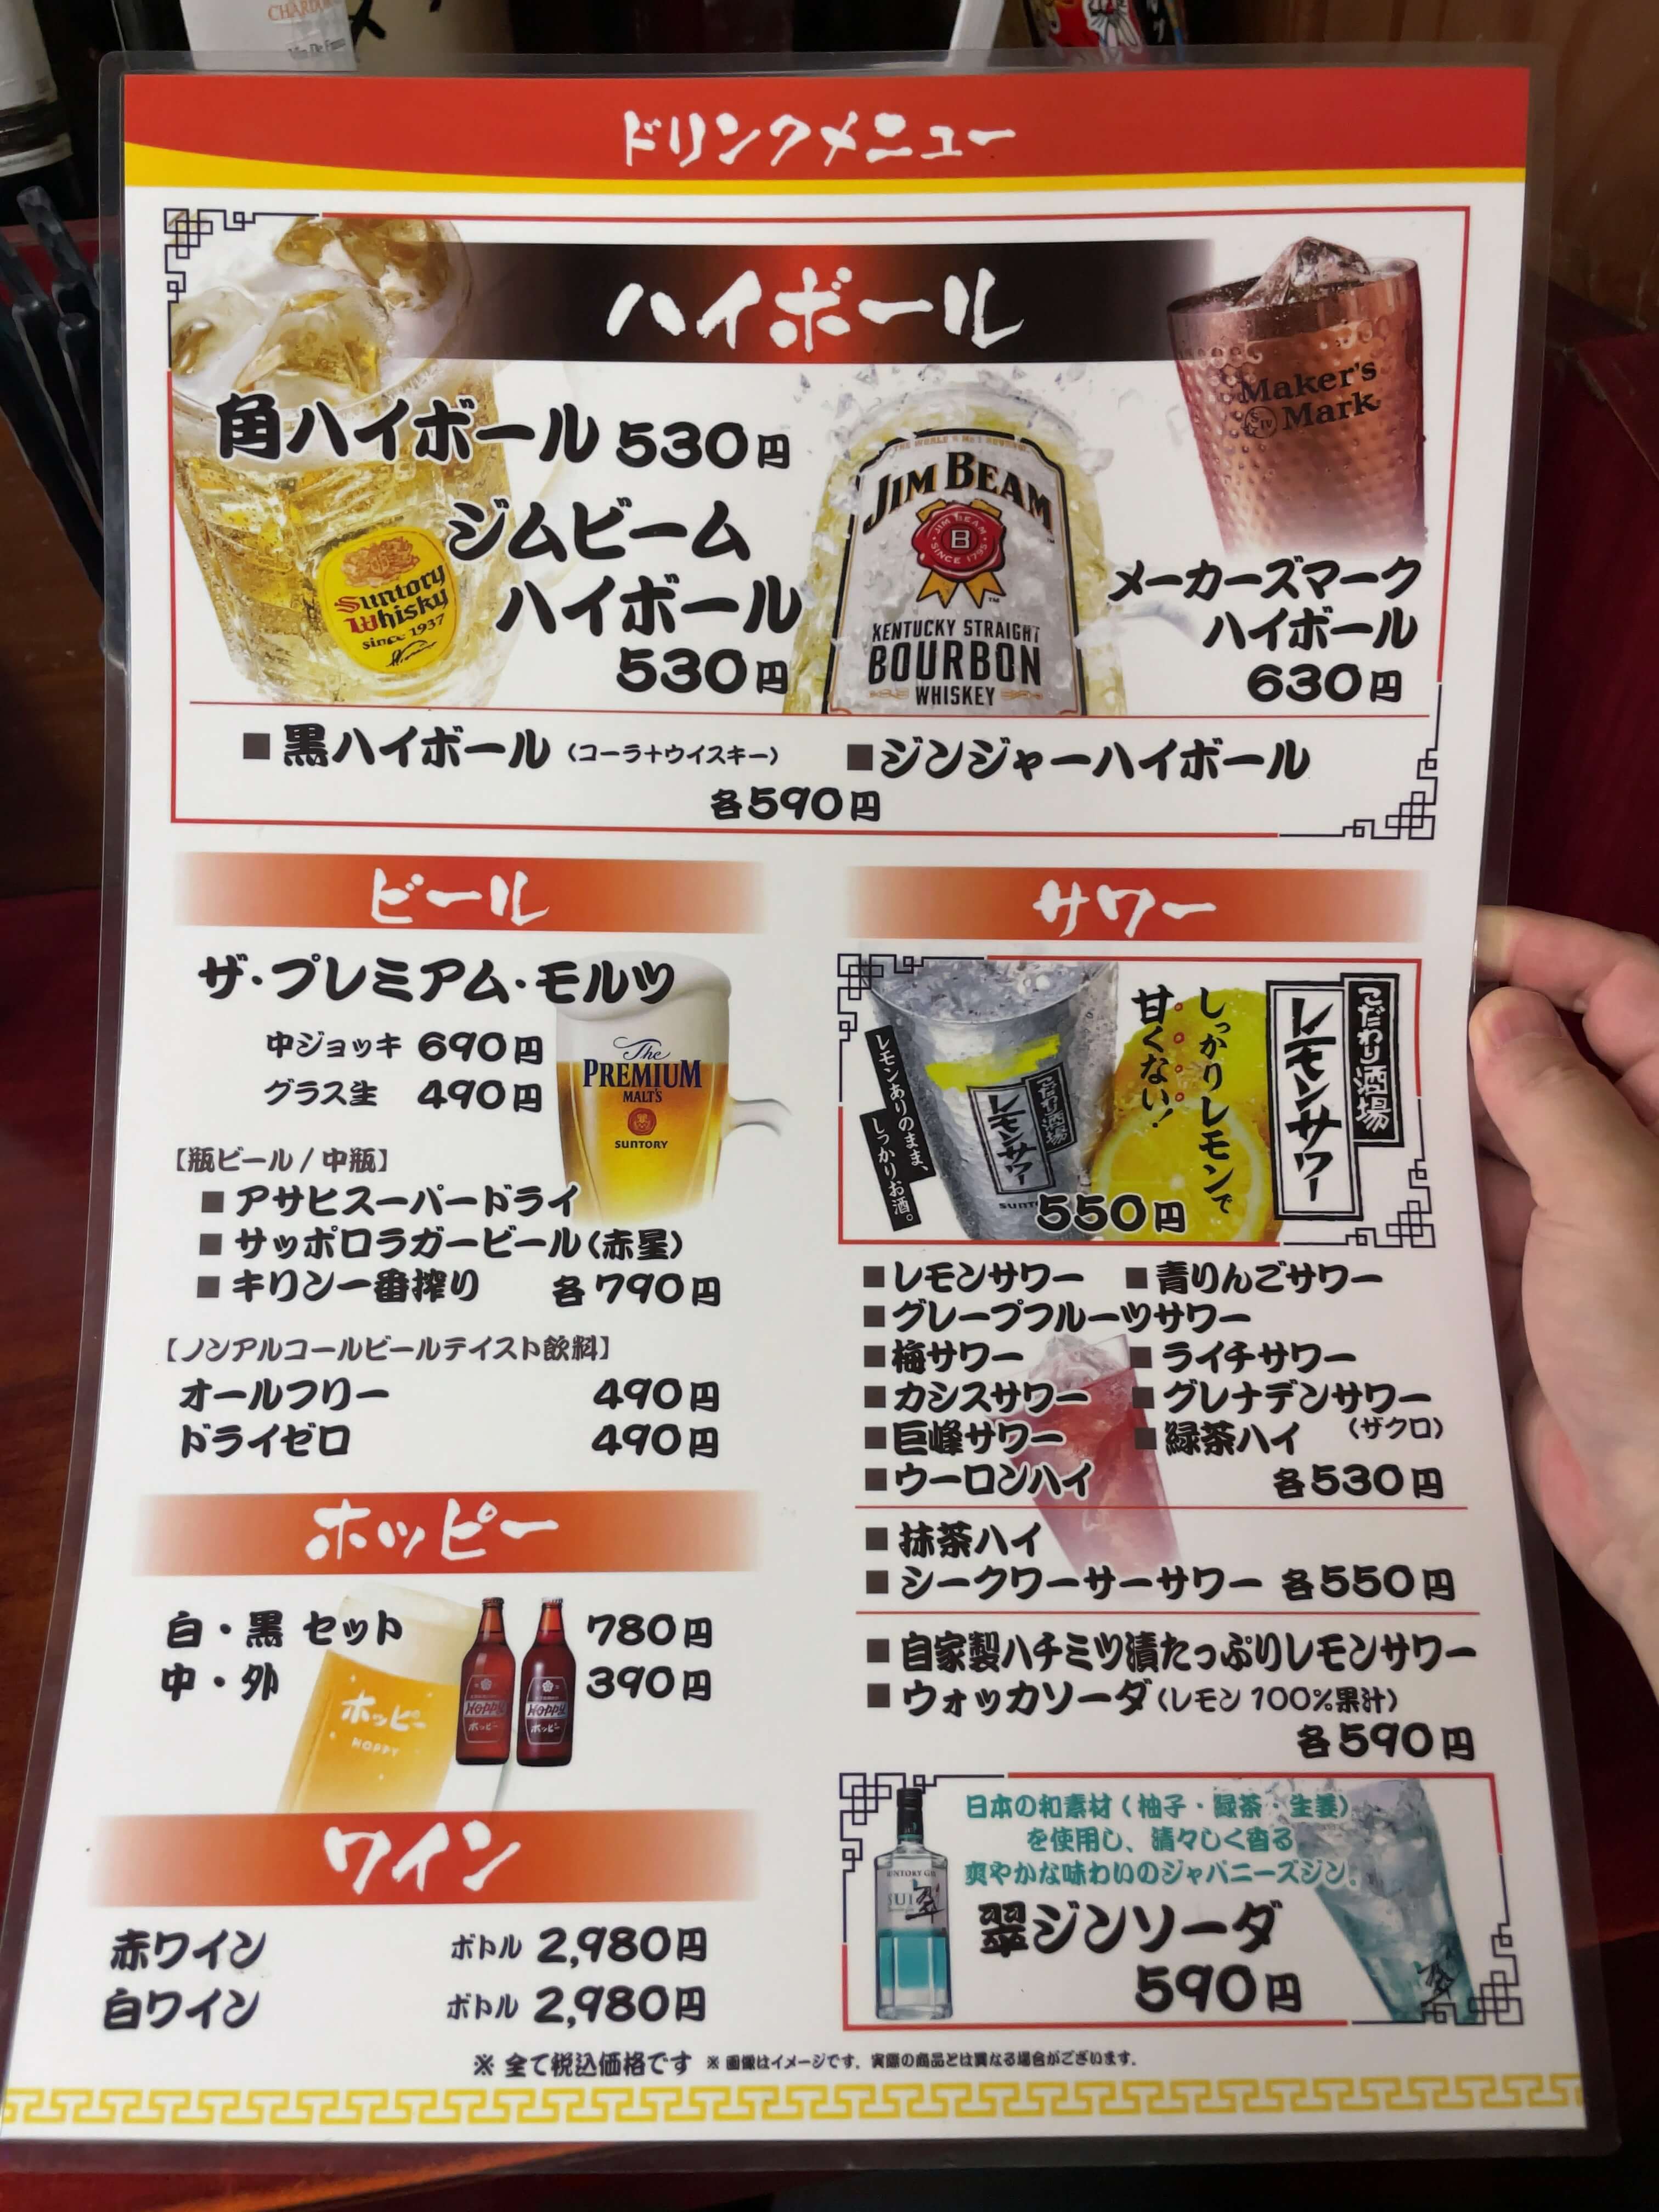 CHARDON
Vin De France
ドリンクメニュー
ハイボール
角ハイボール 530円
ジムビーム
ハイボール
530円
Suntory
Whisky
since 1937
JIM BEAM
JIM BEAM
B
SINCE 1795
KENTUCKY STRAIGHT
BOURBON
WHISKEY
Maker's
Mark
SIV
メーカーズマーク
ハイボール
630円
■黒ハイボール（コーラ+ウイスキー）
■ジンジャーハイボール
各590円
ビール
ザ・プレミアム・モルツ
中ジョッキ 690円
グラス生 490円
The
PREMIUM
MALT'S
SUNTORY
【瓶ビール / 中瓶】
■アサヒスーパードライ
■サッポロラガービール（赤星）
■キリン一番搾り 各790円
【ノンアルコールビールテイスト飲料】
オールフリー 490円
ドライゼロ 490円
ホッピー
白・黒 セット 780円
中・外 390円
ホッピー
HOPPY
HOPPY
ホッピー
HOPPY
ホッピー
ワイン
赤ワイン ボトル 2,980円
白ワイン ボトル 2,980円
サワー
こだわり酒場
レモンサワー
しっかりレモンで
甘くない！
レモンありのまま、
しっかりお酒。
こだわり酒場
レモンサワー
550円
■レモンサワー ■青りんごサワー
■グレープフルーツサワー
■梅サワー ■ライチサワー
■カシスサワー ■グレナデンサワー
（ザクロ）
■巨峰サワー ■緑茶ハイ
■ウーロンハイ 各530円
■抹茶ハイ
■シークワーサーサワー 各550円
■自家製ハチミツ漬たっぷりレモンサワー
■ウォッカソーダ（レモン100%果汁）
各590円
日本の和素材（柚子・緑茶・生姜）
を使用し、清々しく香る
爽やかな味わいのジャパニーズジン。
SUNTORY GIN
SUI
翠
翠ジンソーダ
590円
※ 全て税込価格です ※ 画像はイメージです。実際の商品とは異なる場合がございます。